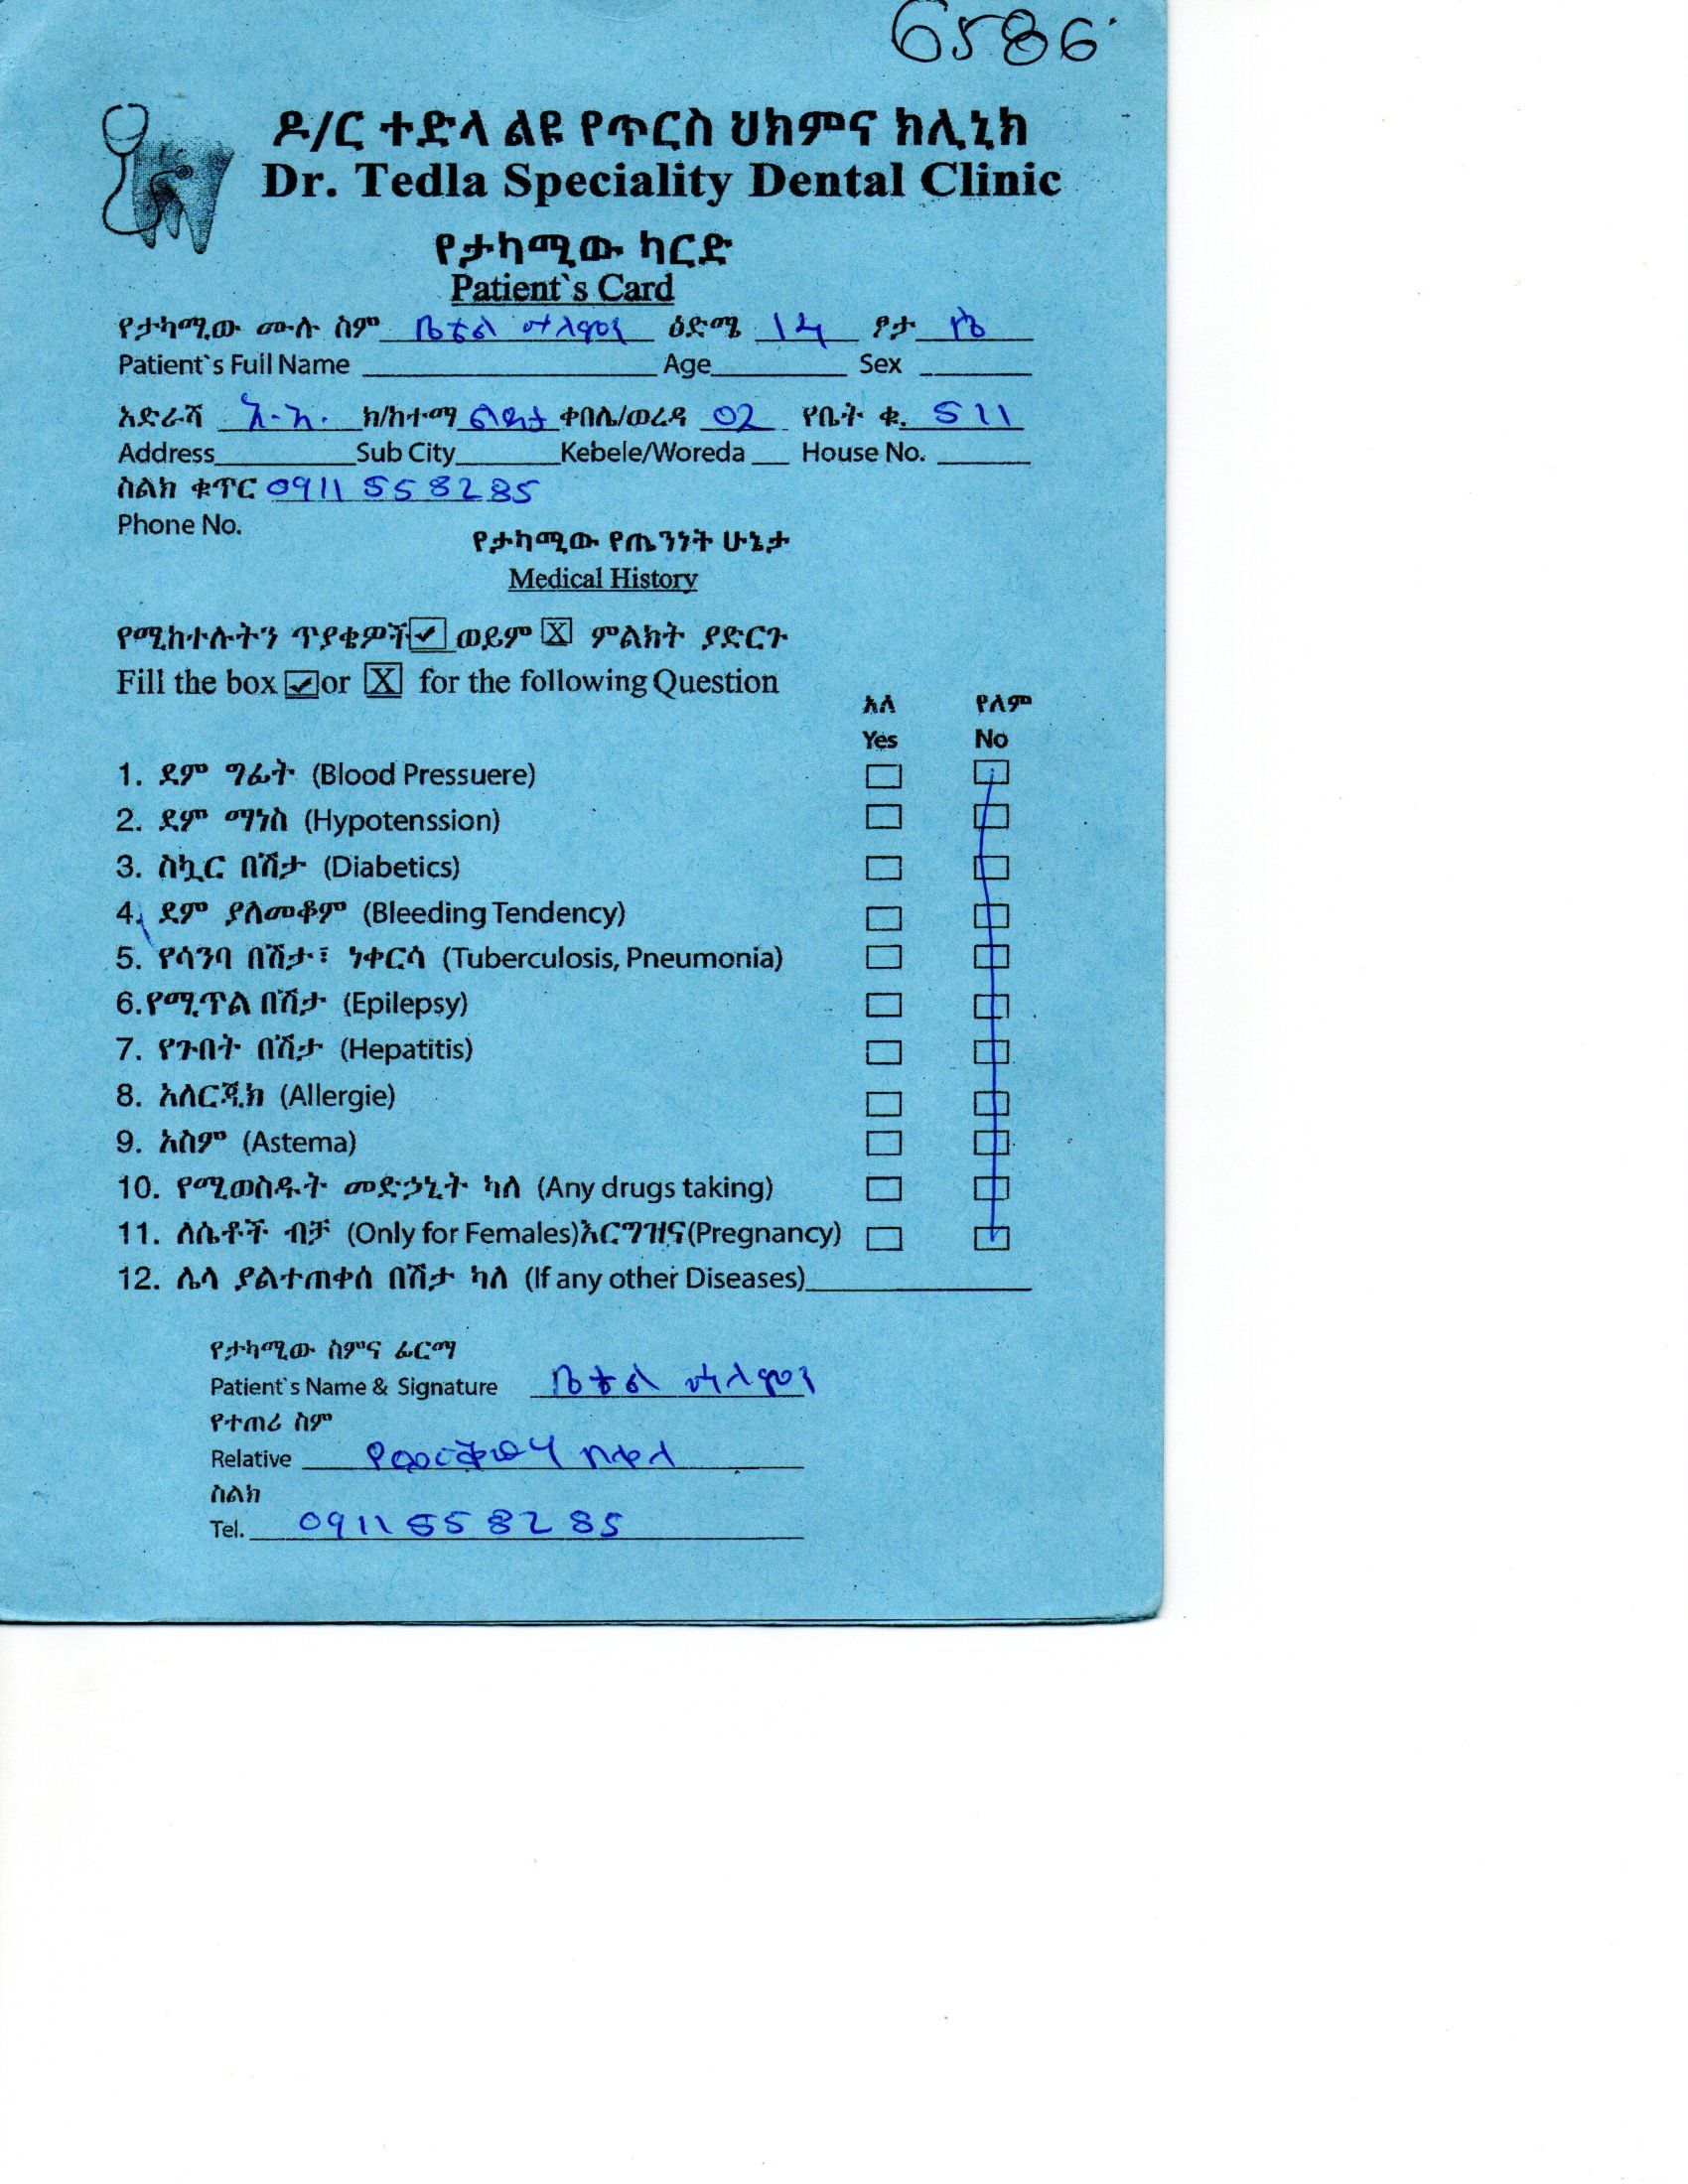 6586
ዶ/ር ተድላ ልዩ የጥርስ ህክምና ክሊኒክ
Dr. Tedla Speciality Dental Clinic
የታካሚው ካርድ
Patient`s Card
የታካሚው ሙሉ ስም ቤቴል ዕድሜ 14 ፆታ ሴ
Patient`s Full Name Age Sex
አድራሻ አ.አ. ክ/ከተማ ልደታ ቀበሌ/ወረዳ 02 የቤት ቁ. 511
Address Sub City Kebele/Woreda House No.
ስልክ ቁጥር 0911 558285
Phone No.
የታካሚው የጤንነት ሁኔታ
Medical History
የሚከተሉትን ጥያቄዎች ✓ ወይም X ምልክት ያድርጉ
Fill the box ✓ or X for the following Question
አለ የለም
Yes No
1. ደም ግፊት (Blood Pressuere)
2. ደም ማነስ (Hypotenssion)
3. ስኳር በሽታ (Diabetics)
4. ደም ያለመቆም (Bleeding Tendency)
5. የሳንባ በሽታ፣ ነቀርሳ (Tuberculosis, Pneumonia)
6.የሚጥል በሽታ (Epilepsy)
7. የጉበት በሽታ (Hepatitis)
8. አለርጂክ (Allergie)
9. አስም (Astema)
10. የሚወስዱት መድኃኒት ካለ (Any drugs taking)
11. ለሴቶች ብቻ (Only for Females)እርግዝና(Pregnancy)
12. ሌላ ያልተጠቀሰ በሽታ ካለ (If any other Diseases)
የታካሚው ስምና ፊርማ
Patient`s Name & Signature ቤቴል
የተጠሪ ስም
Relative
ስልክ
Tel. 0911 558285